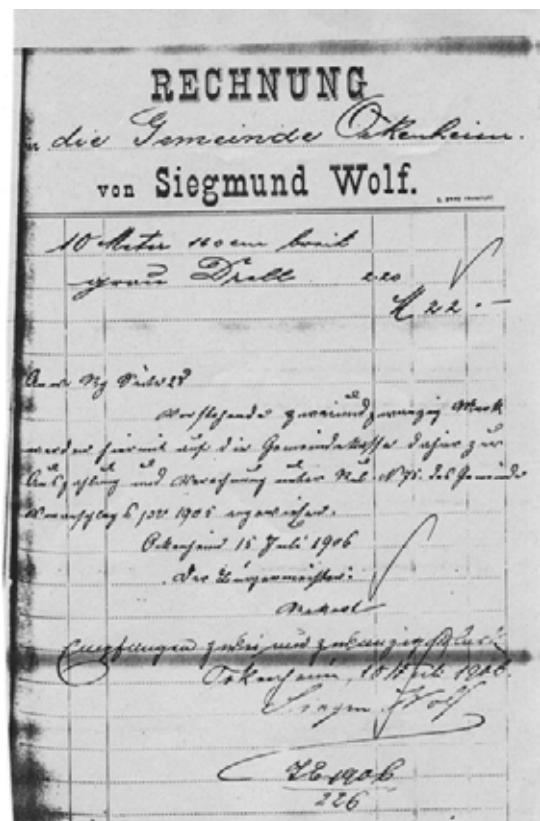 RECHNUNG
die Gemeinde Ockenheim.
von Siegmund Wolf.
10 Meter 160 cm breit
grau Drell 2.20
M 22.—
Seite 28
Vorstehende zweiundzwanzig Mark
werden hiermit auf die Gemeindekasse dahier zur
Auszahlung und Verrechnung unter Rub. N 75. des Gemeinde
Voranschlags pro 1905 angewiesen.
Ockenheim 15 Juli 1906
Der Bürgermeister:
Empfangen zwei und zwanzig
Ockenheim, 1906.
Siegm. Wolf
1906
226